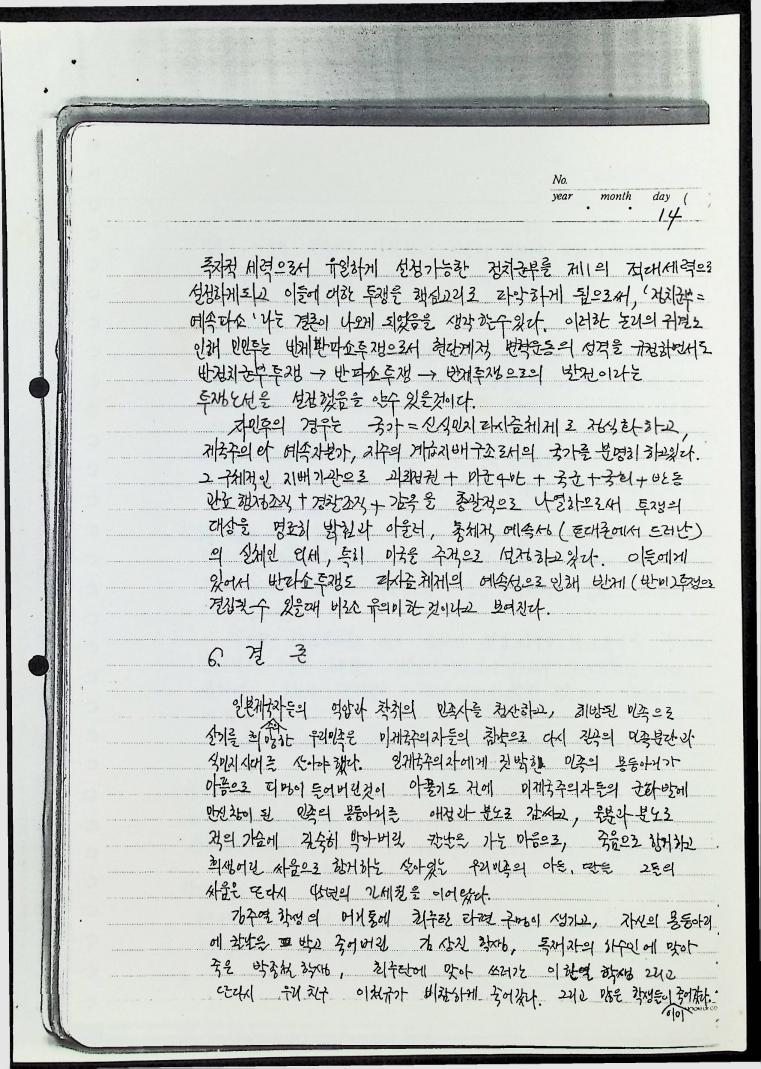 No.
year . month . day (
14
독자적 세력으로서 유일하게 설정가능한 정치군부를 제1의 적대세력으로
설정하게되고 이들에 대한 투쟁을 핵심고리로 파악하게 됨으로써, '정치군부=
예속파쇼'라는 결론이 나오게 되었음을 생각할수있다. 이러한 논리의 귀결로
인해 민민투는 반제반파쇼투쟁으로서 현단계적 변혁운동의 성격을 규정하면서도
반정치군부투쟁 → 반파쇼투쟁 → 반제투쟁으로의 발전이라는
투쟁노선을 설정했음을 알수 있을것이다.
자민투의 경우는 국가=신식민지파시즘체제로 정식화하고,
제국주의와 예속자본가, 지주의 계급지배구조로서의 국가를 분명히 하고있다.
그 구체적인 지배기관으로 괴뢰정권 + 미군4만 + 국군+국회+반동
관료행정조직+경찰조직+감옥을 총괄적으로 나열하므로써 투쟁의
대상을 명료히 밝힘과 아울러, 총체적 예속성(토대론에서 드러난)
의 실체인 외세, 특히 미국을 주적으로 설정하고있다. 이들에게
있어서 반파쇼투쟁도 파시즘체제의 예속성으로 인해 반제(반미)투쟁으로
결집될수 있을때 비로소 유의미한 것이라고 보여진다.
6. 결 론
일본제국주의자들의 억압과 착취의 민족사를 청산하고, 해방된 민족으로
살기를 희망한 우리민족은 미제국주의자들의 침략으로 다시 질곡의 민족분단과
식민지시대를 살아야 했다. 일제국주의자에게 짓밟힌 민족의 몸둥아리가
아픔으로 피멍이 들어버린것이 아물기도 전에 미제국주의자들의 군화발에
만신창이 된 민족의 몸둥아리를 애정과 분노로 감싸고, 울분과 분노로
적의 가슴에 깊숙히 박아버릴 칼날을 가는 마음으로, 죽음으로 항거하고
희생어린 싸움으로 항거하는 살아있는 우리민족의 아들, 딸들 그들의
싸움은 또다시 40년의 긴세월을 이어왔다.
김주열 학생의 머리통에 최루탄 파편 구멍이 생기고, 자신의 몸둥아리
에 칼날을 박고 죽어버린 김상진 학생, 독재자의 하수인에 맞아
죽은 박종철 학생, 최루탄에 맞아 쓰러진 이한열 학생 그리고
또다시 우리친구 이철규가 비참하게 죽어갔다. 그리고 많은 학생들이 죽어갔다.